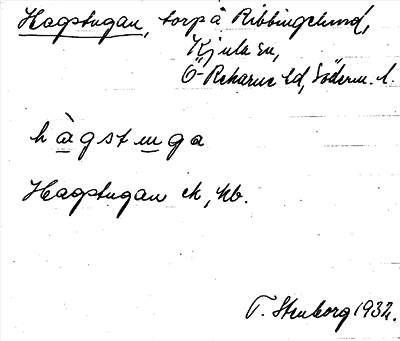 Hagstugan, torp å Ribbingelund,
Kjula sn,
Ö-Rekarne hd, Söderm. l.
hàgstuga
Hagstugan ek, kb.
T. Stenborg 1932.